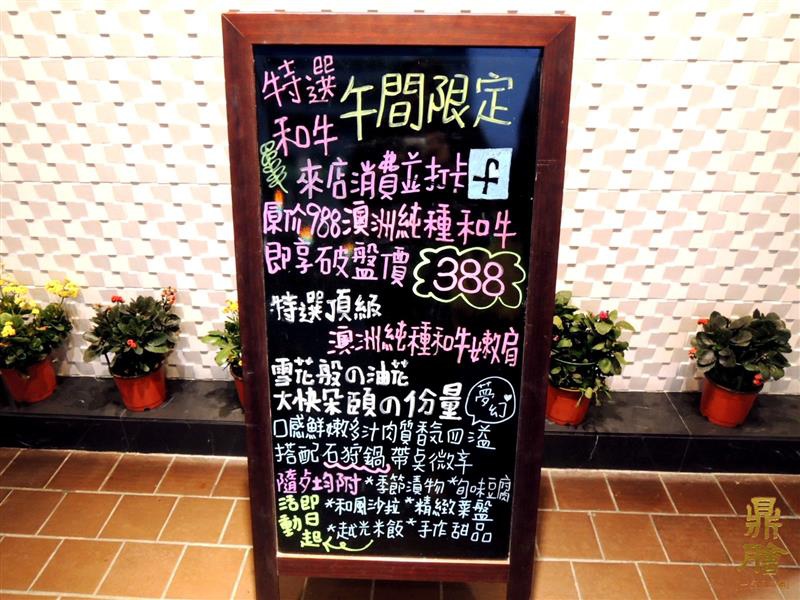 特選
和牛
午間限定
來店消費並打卡 f
原价988澳洲純種和牛
即享破盤價 388
特選頂級
澳洲純種和牛嫩肩
雪花般の油花
大快朵頤の份量 夢幻
口感鮮嫩多汁肉質香気四溢
搭配石狩鍋帶点微辛
隨歩均附 *季節漬物 *旬味豆腐
*和風沙拉 *精緻菜盤
*越光米飯 *手作甜品
活動 即日起
鼎膾